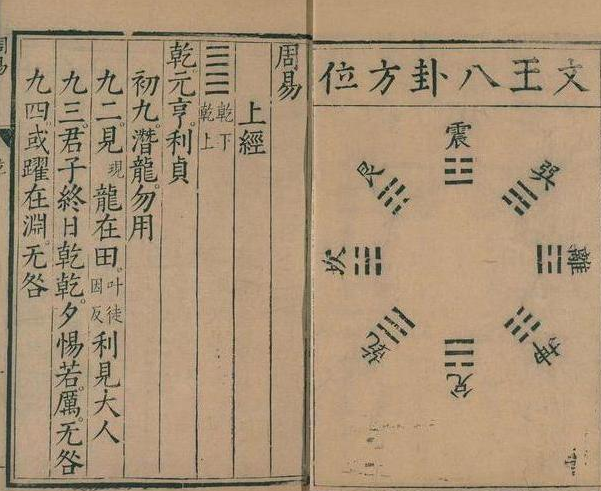 文王八卦方位
震
巽
離
坤
兌
乾
坎
艮
周易
上經
乾下
乾上
乾元亨利貞
初九潛龍勿用
九二見現龍在田叶徒因反利見大人
九三君子終日乾乾夕惕若厲无咎
九四或躍在淵无咎
周易